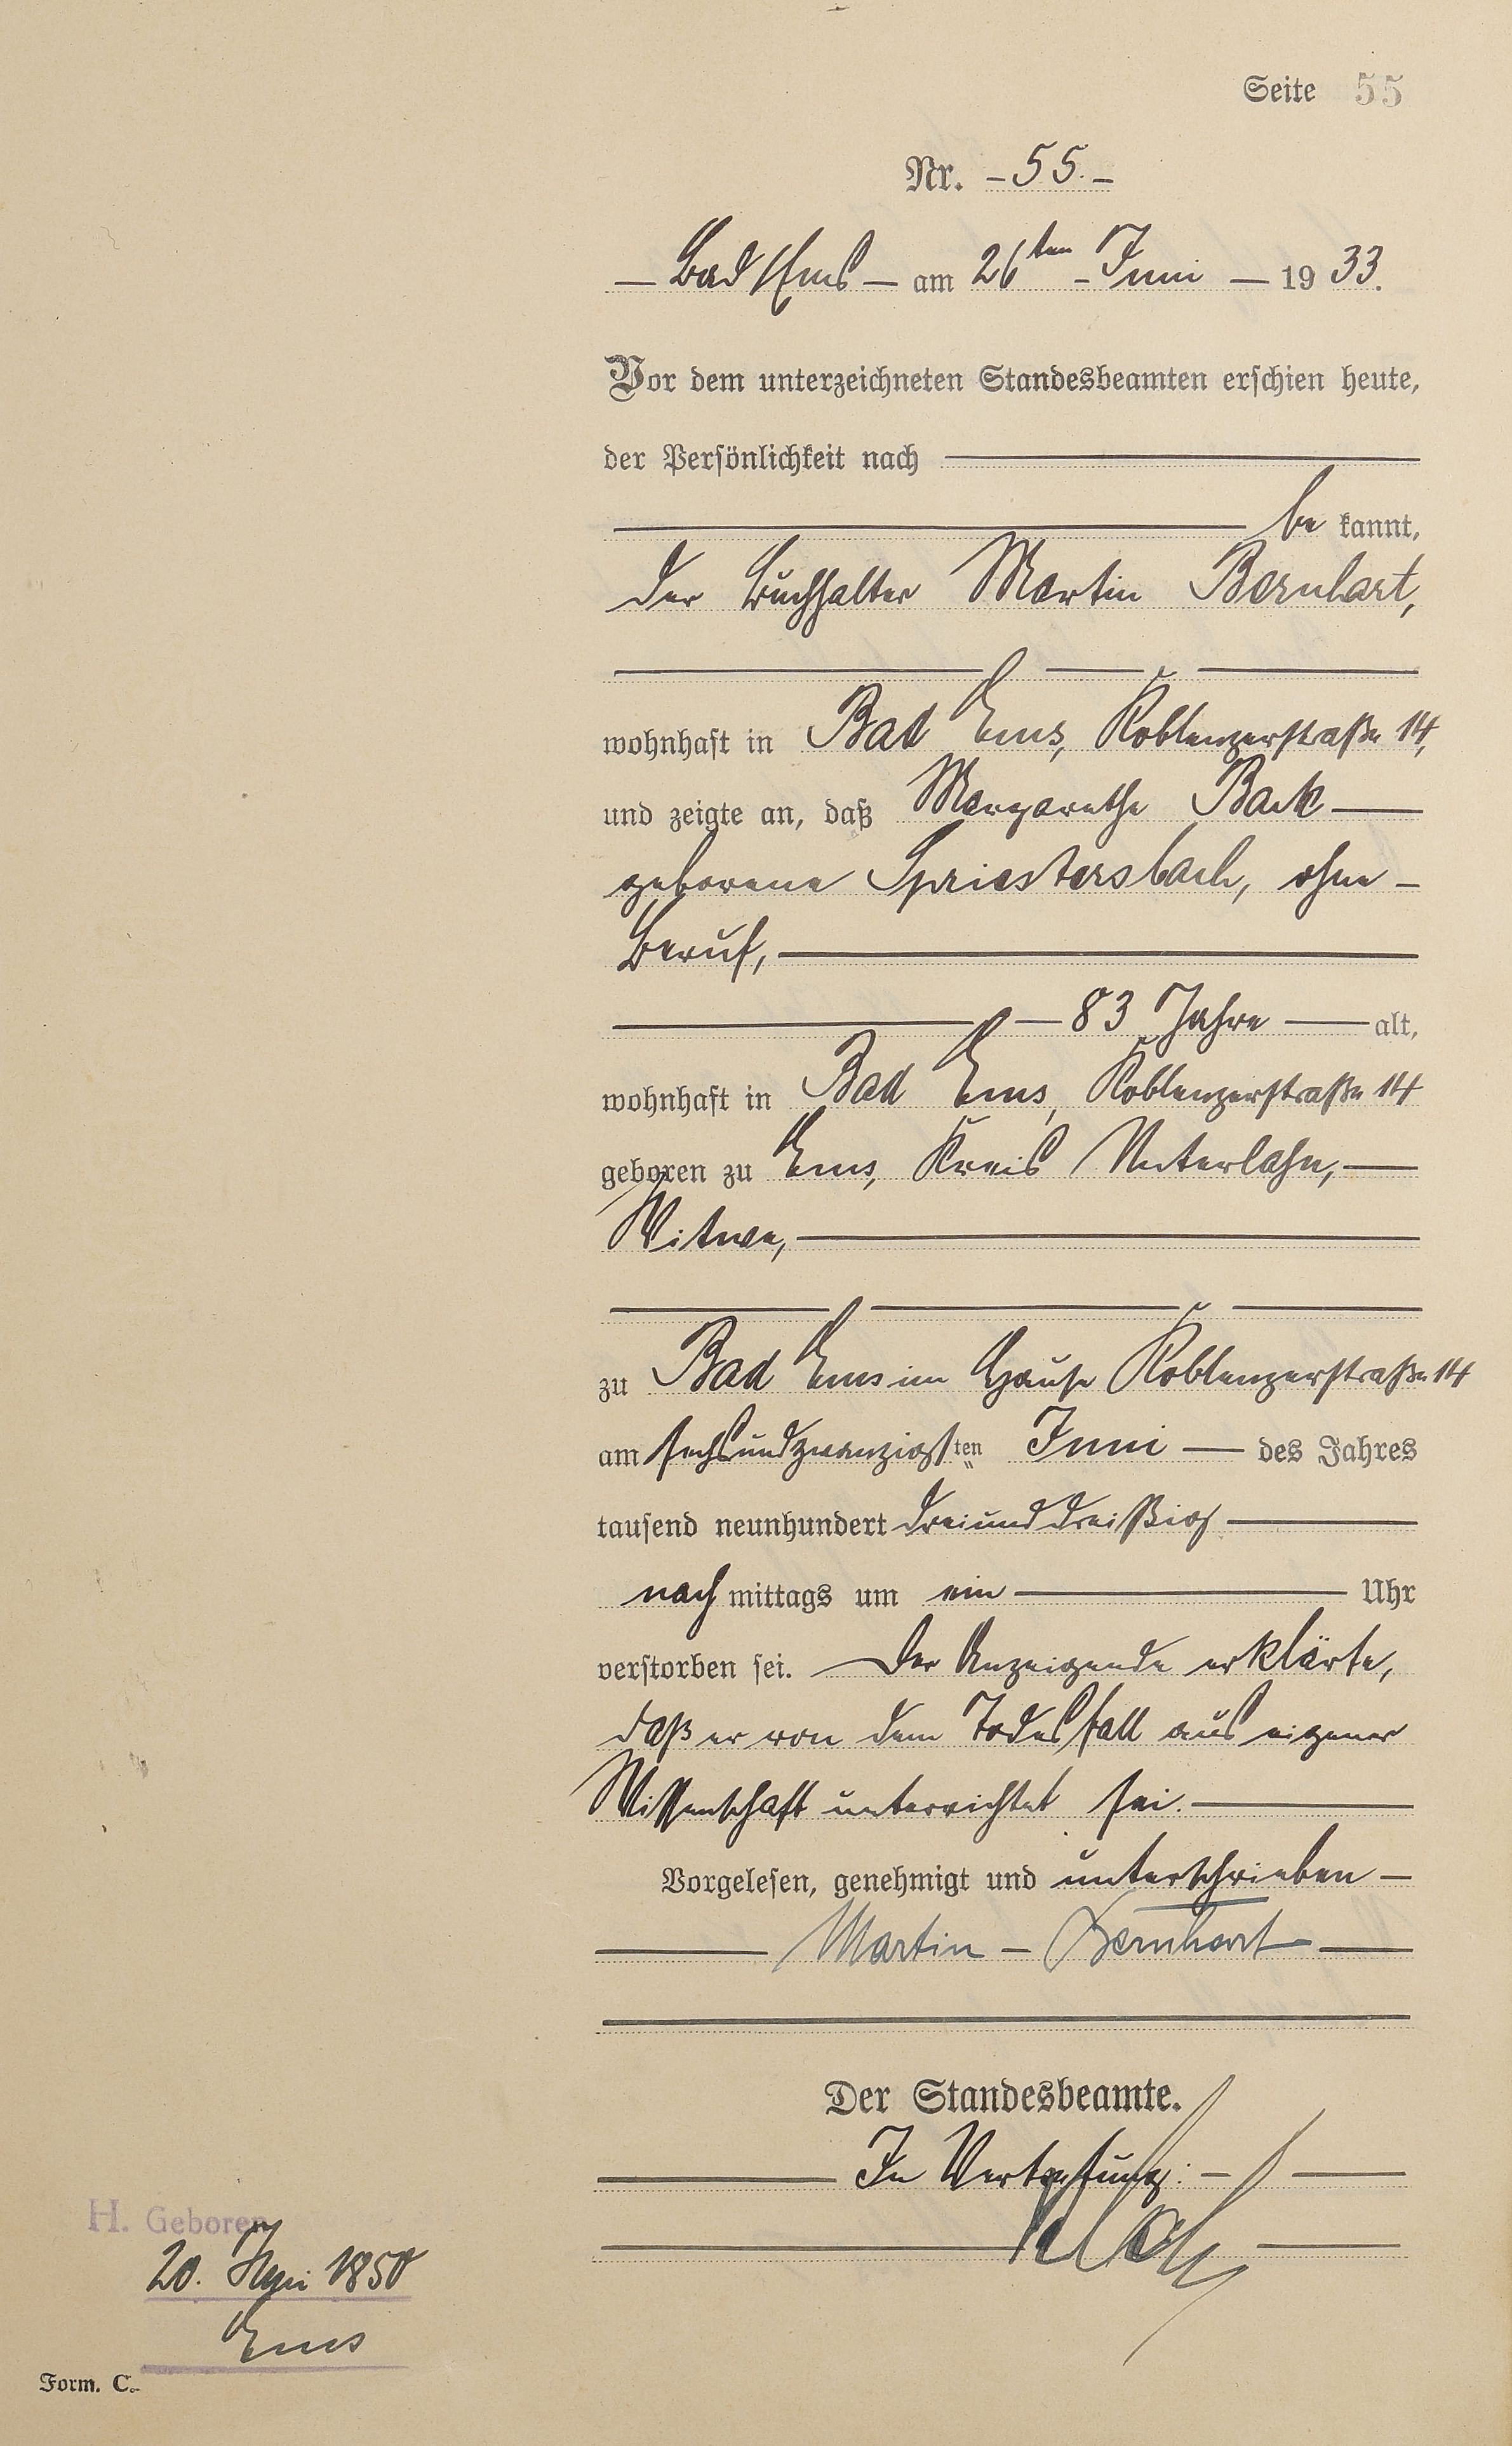 Seite 55
Nr. – 55. –
— Bad Ems — am 26ten – Juni — 19 33.
Vor dem unterzeichneten Standesbeamten erschien heute,
der Persönlichkeit nach
be kannt,
der Buchhalter Martin Bernhart,
wohnhaft in Bad Ems, Koblenzerstraße 14,
und zeigte an, daß Margarethe Back —
geborene Spriestersbach, ohne –
Beruf,
— 83 Jahre — alt,
wohnhaft in Bad Ems, Koblenzerstraße 14
geboren zu Ems, Kreis Unterlahn, —
Witwe,
zu Bad Ems im Hause Koblenzerstraße 14
am sechsundzwanzigsten Juni — des Jahres
tausend neunhundert dreiunddreißig
nach mittags um ein Uhr
verstorben sei. — Der Anzeigende erklärte,
daß er von dem Todesfall aus eigener
Wissenschaft unterrichtet sei. —
Vorgelesen, genehmigt und unterschrieben —
Martin – Bernhart
Der Standesbeamte.
In Vertretung: –
H. Geboren
20. 1850
Ems
Form. C.